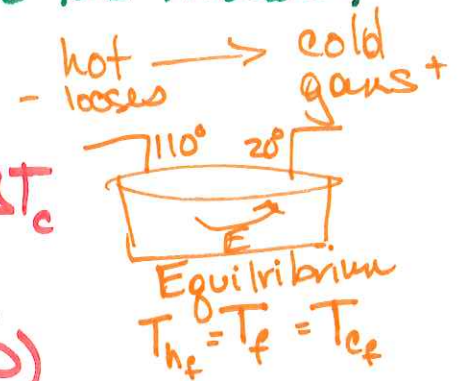 hot → cold
- looses gains +
110° 20°
ΔT_c
E
Equilribrium
T_hf = T_f = T_cf